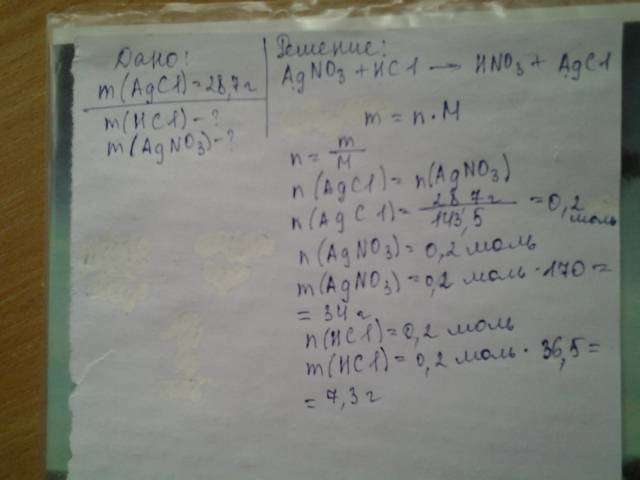 Дано:
m(AgCl)=28,7г
m(HCl)-?
m(AgNO3)-?
Решение:
AgNO3+HCl → HNO3+ AgCl
m = n·M
n = m/M
n(AgCl)= n(AgNO3)
n(AgCl)= 28 7г/143,5 =0,2 моль
n(AgNO3)=0,2 моль
m(AgNO3)=0,2 моль·170=
= 34 г
n(HCl)=0,2 моль
m(HCl)=0,2 моль· 36,5=
= 7,3 г